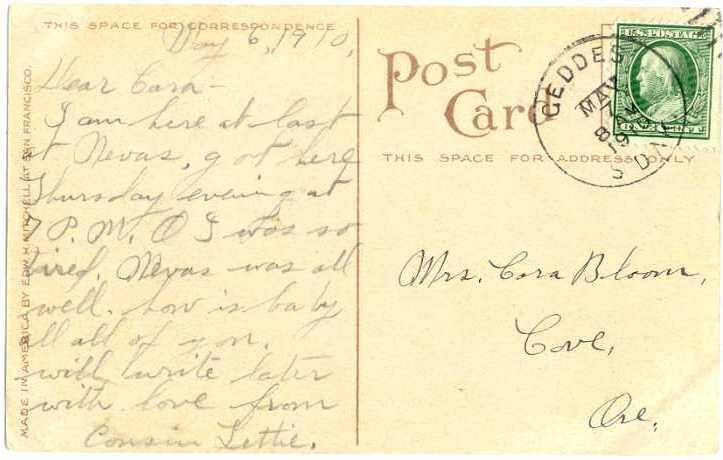 THIS SPACE FOR CORRESPONDENCE
May 6, 1910,
Dear Cora-
I am here at last
at Nevas, got here
Thursday evening at
7 P.M. O I was so
tired. Nevas was all
well. how is baby
all all of you.
will write later
with love from
Cousin Lettie.
MADE IN AMERICA BY EDW. H. MITCHELL AT SAN FRANCISCO.
Post
Card
THIS SPACE FOR ADDRESS ONLY
GEDDES
MAY
8 AM
19
S DAK
U.S. POSTAGE
ONE CENT
Mrs. Cora Bloom,
Cove,
Ore.